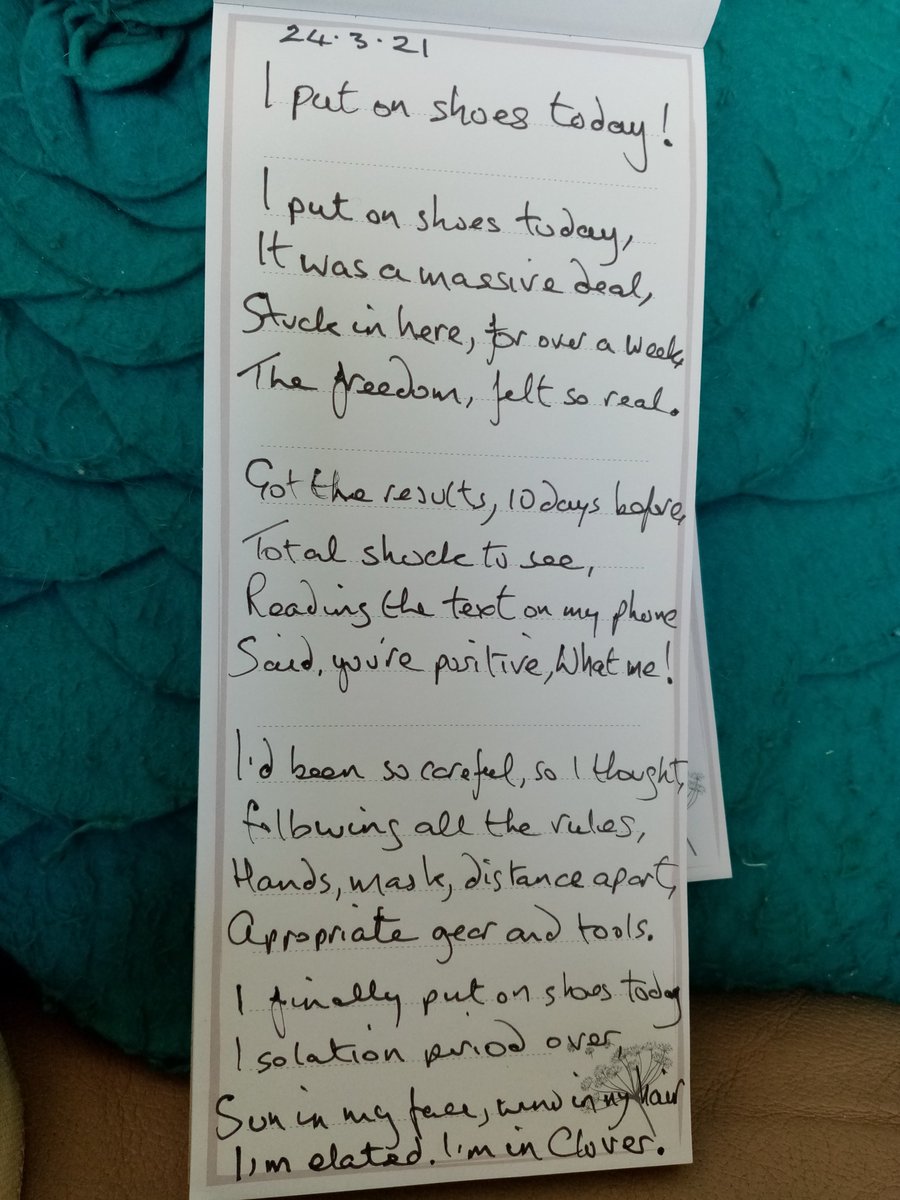 24.3.21
I put on shoes today!
I put on shoes today,
It was a massive deal,
Stuck in here, for over a week,
The freedom, felt so real.
Got the results, 10 days before,
Total shock to see,
Reading the text on my phone
Said, you're positive, What me!
I'd been so careful, so I thought,
following all the rules,
Hands, mask, distance apart,
Appropriate gear and tools.
I finally put on shoes today
Isolation period over,
Sun in my face, wind in my hair
I'm elated. I'm in Clover.